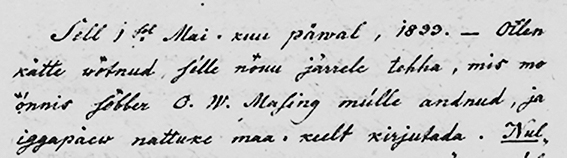 Sell 1sel Mai-kuu päwal, 1833. — Ollen
kätte wötnud, selle nöuu järrele tehha, mis mo
önnis söbber O. W. Masing mulle andnud, ja
iggapäew nattuke maa-keelt kirjutada. Nul-